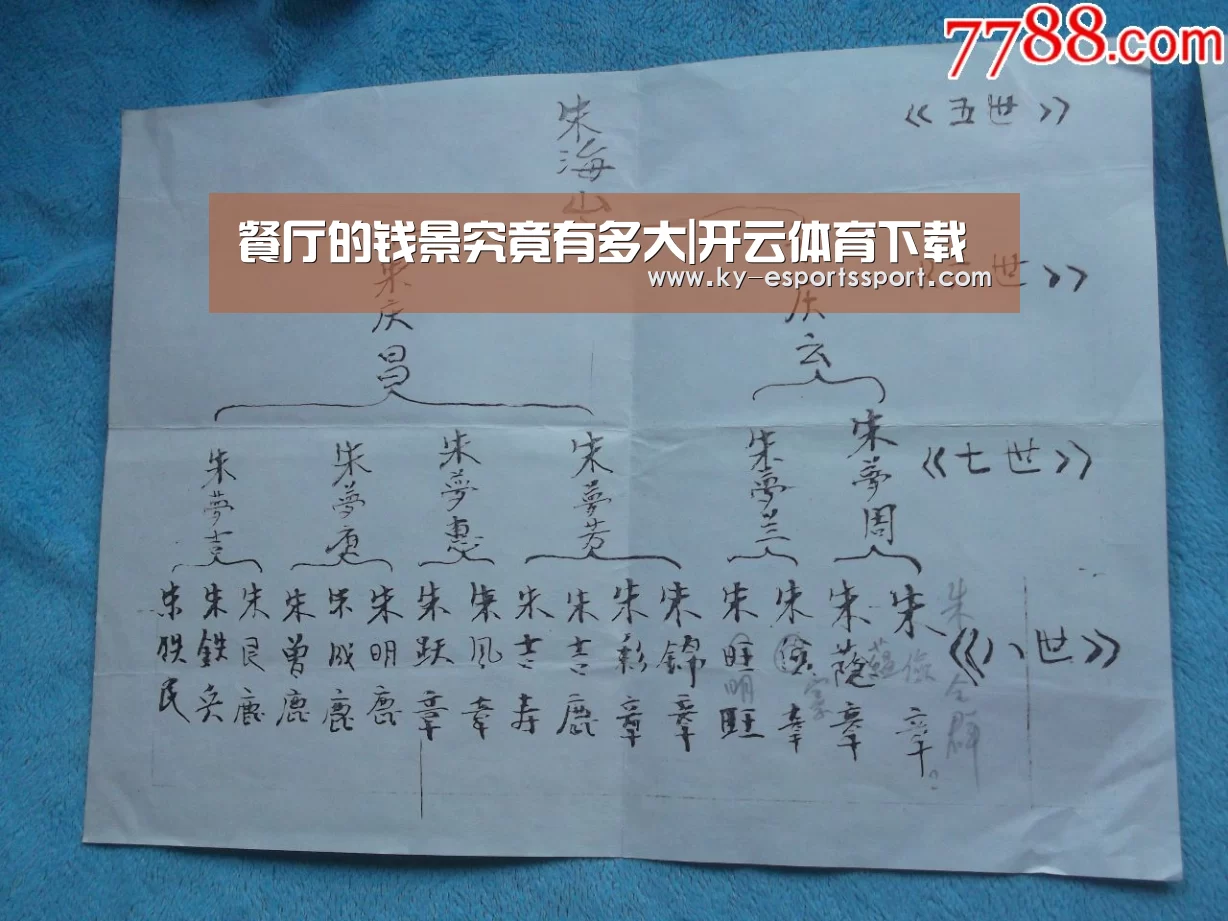 7788.com
《五世》
朱海山
餐厅的钱景究竟有多大|开云体育下载
www.ky-esportssport.com
世》
朱庆昌
庆云
《七世》
朱夢吉
朱夢庚
朱夢惠
朱夢芳
朱夢兰
朱夢周
《八世》
朱铁民
朱鉄英
朱艮鹿
朱曾鹿
朱成鹿
朱明鹿
朱跃章
朱凤章
朱吉寿
朱吉鹿
朱彩章
朱錦章
朱旺旺
明
朱儉章
家
朱蔭章
朱章。
儉
朱仝群